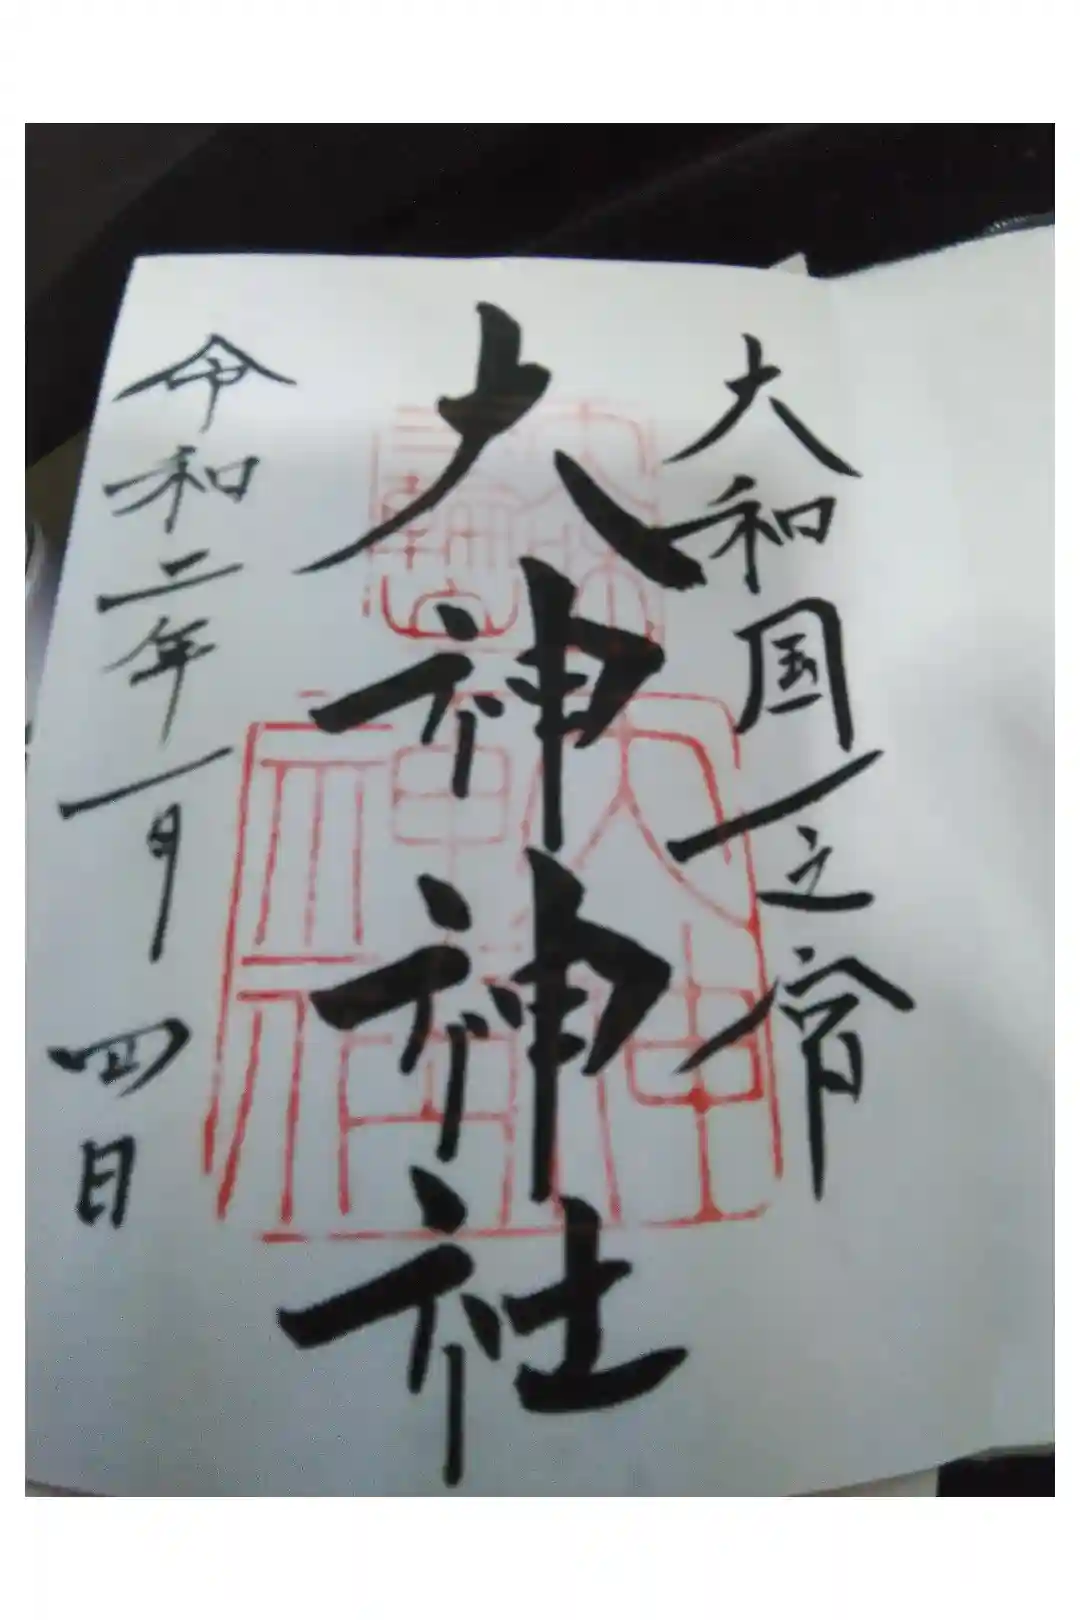 大和国一之宮
大神神社
令和二年一月四日